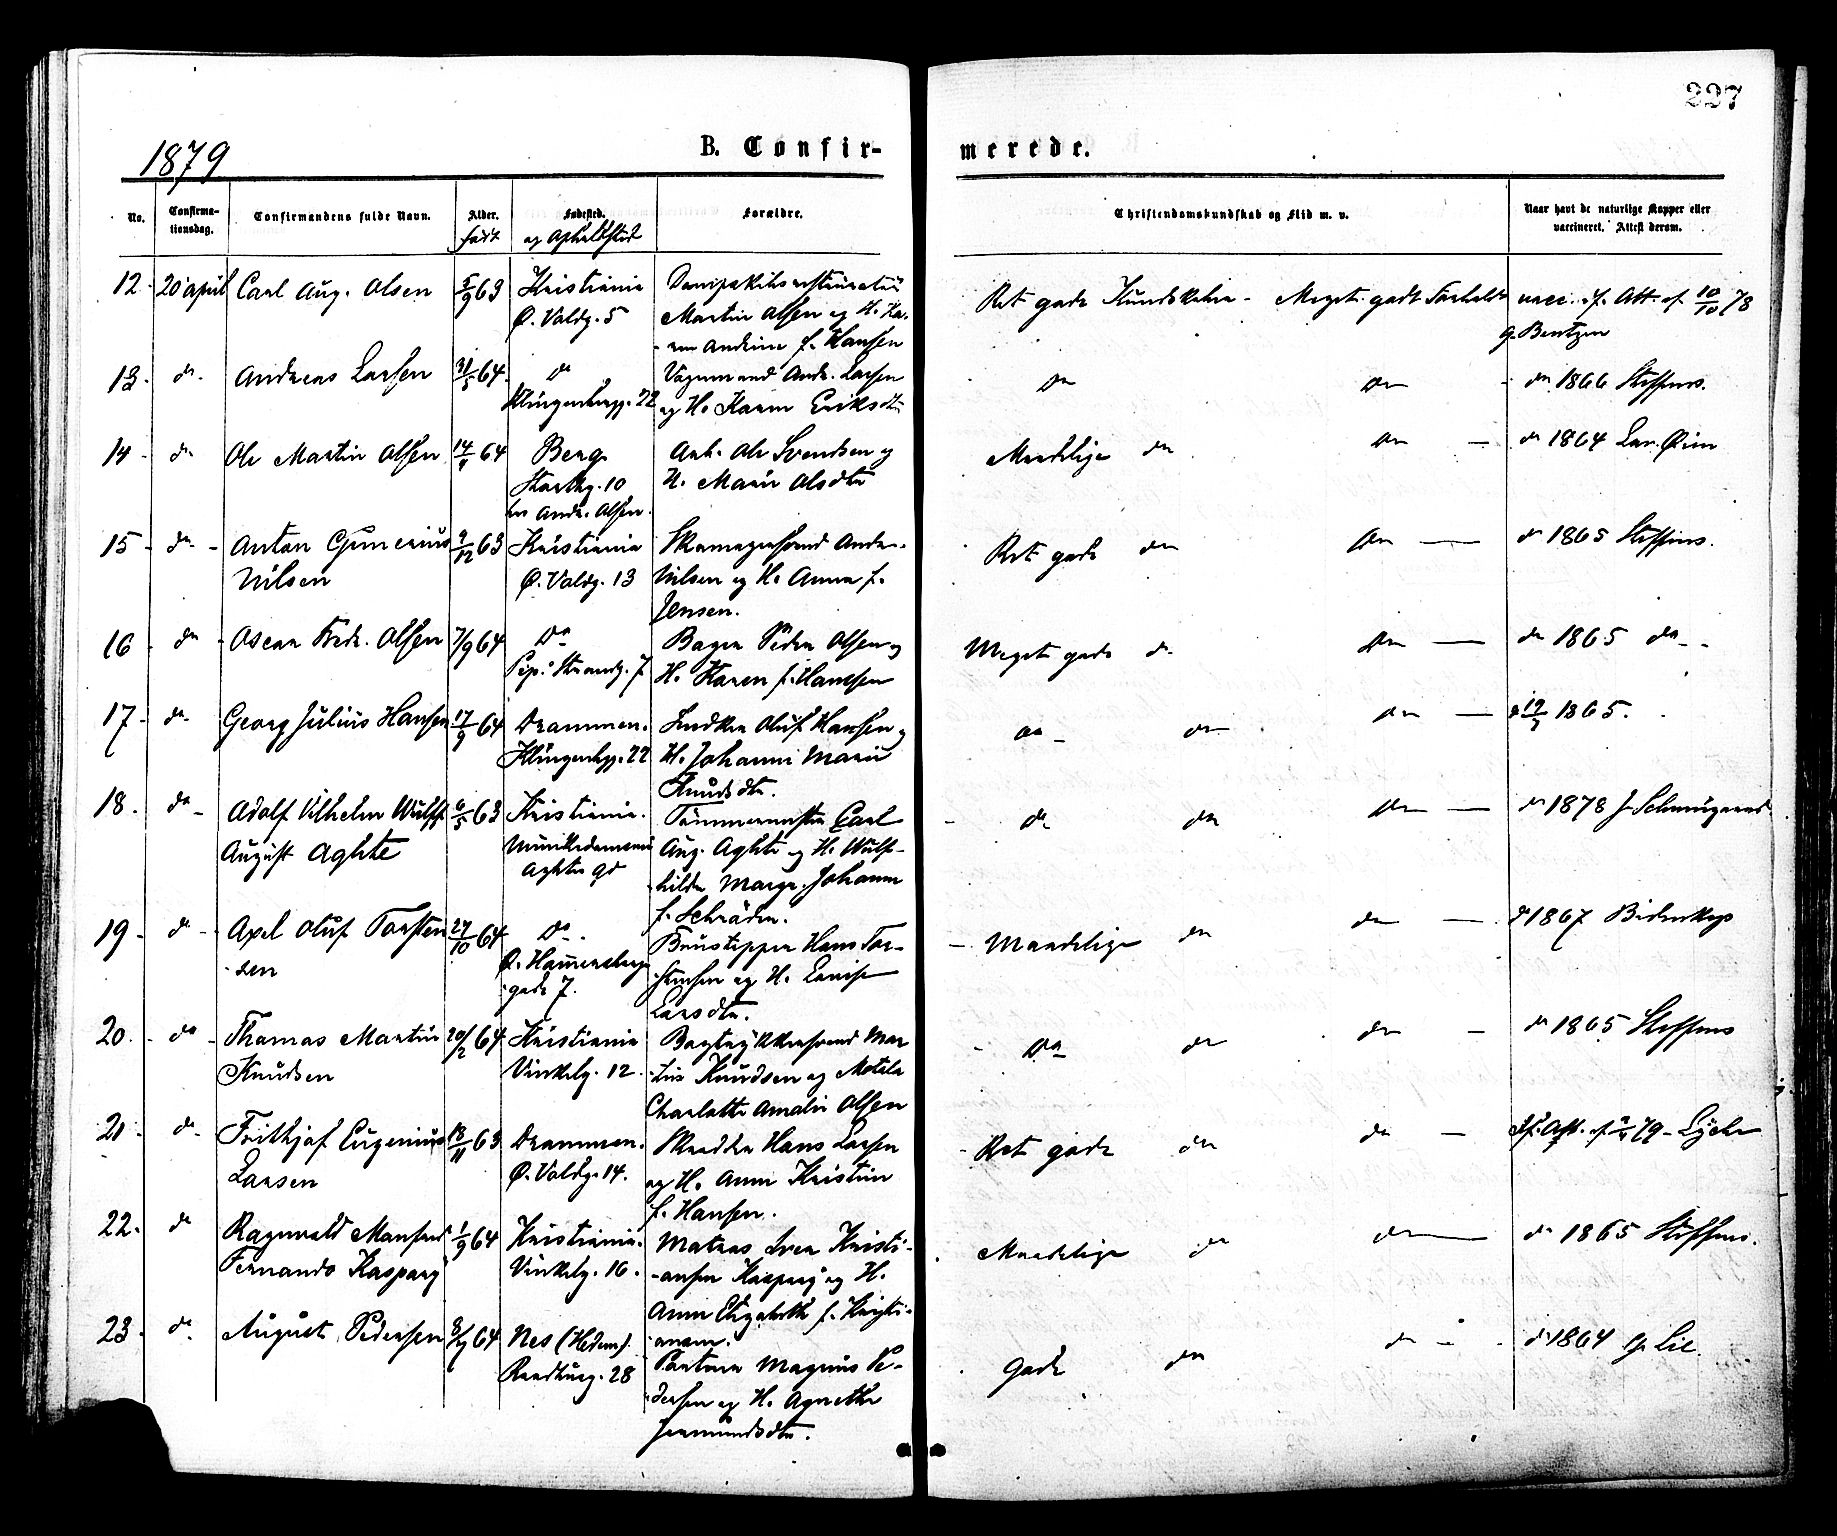 227
1879
B. Confir-
merede.
No.
Confirma-
tionsdag.
Confirmandens fulde Navn.
Alder.
født
Fødested.
og Opholdsted
Forældre.
Christendomskundskab og Flid m. v.
Naar havt de naturlige Kopper eller
vaccineret. Attest derom.
12. 20 april Carl Aug. Olsen 5/9 63 Kristiania
Ø. Voldg. 5
Martin Olsen og H. Ka-
ren Andrine f. Hansen
Ret gode Kundskaber - Meget godt Forhold vacc. if. Att. af 10/10 78
G. Bentzen
13. do. Andreas Larsen 31/5 64. do
Klingenbergg. 22
Vognmand Andr. Larsen
og H. Karen Eriksdtr
do do do 1866 Steffens.
14 - do Ole Martin Olsen 14/4 64 Berg
Storthg. 10
hos Andr. Olsen.
Arb. Ole Svendsen og
H. Marie Olsdtr
Maadelige do do - do 1864 Lar. Øim
15 - do - Anton Gunerius
Nilsen
9/12 63 Kristiania
Ø. Voldg. 13
Skomagersvend Andr.
Nilsen og H. Anna f.
Jensen.
Ret gode do do - do 1865 Steffens.
16 - do - Oscar Fredr. Olsen 7/9 64 Do
Pip. Strandg. 7
Bager Peder Olsen og
H. Karen f. Hansen
Meget gode do do - do 1865 do -
17 - do - Georg Julius Hansen 17/9 64 Drammen.
Klingenbgg. 22
Snedker Oluf Hansen og
H. Johanne Marie
Knudsdtr.
do - do do - do 19/7 1865.
18. do - Adolf Vilhelm Wulff
August Aghte
6/5 63 Kristiania.
Munkedamsvei
Aghtes Gd
Tømmermester Carl
Aug. Aghte og H. Wulf-
hilde Margr. Johanne
f. Schrøder.
do do do - do 1878 J. Schmugaard
19 - do - Axel Oluf Torsten
-sen
27/10 64 Do.
Ø. Hammersborg
gade 7.
Hans Tor-
stensen og H. Lovise
Larsdtr.
Maadelige do do - do 1867 Bidenkap
20. - do - Thomas Martin
Knudsen
20/2 64 Kristiania
Vinkelg. 12.
Bogtrykkersvend Mar
-tin Knudsen og
Charlotte Amalie Olsen
Do do do - do 1865 Steffens
21 - do - Frithjof Eugenius
Larsen
18/11 63 Drammen.
Ø. Voldg. 14.
Skrædder Hans Larsen
og H. Anne Kristine
f. Hansen.
Ret gode do do - if. Att. af 79 - Lyche
22. do Ragnvald
Fernando Kaspary
1/9 64 Kristiania.
Vinkelg. 16.
Matros Sven Kristi-
-ansen Kaspary og H.
Anne Elizabeth f. Kristi-
ansen.
Maadelige do do do 1865 Steffens.
23. do. August Pedersen 64 Nes (Hedem).
Raadhusg. 28
Magnus Pe-
dersen og H. Agnethe
Gode do do - do 1864 G. Lie.